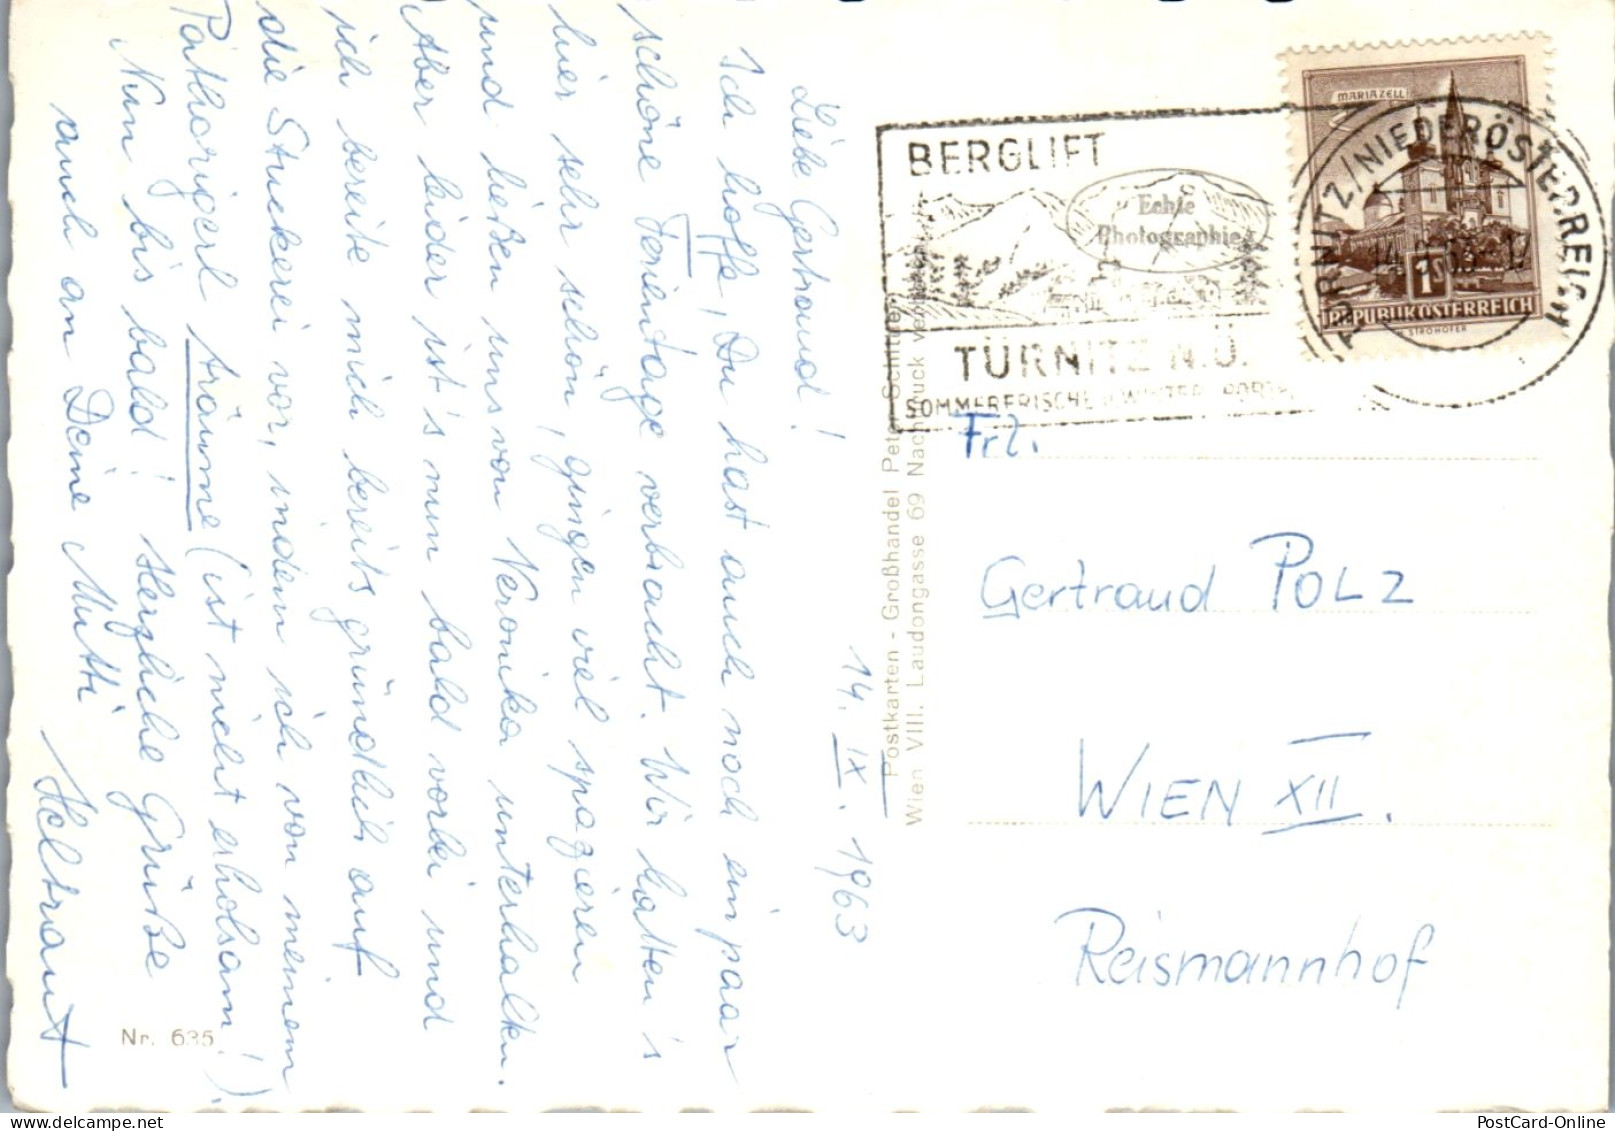 Liebe Gertraud!
Ich hoffe, Du hast auch noch ein paar
schöne Ferientage verbracht. Wir hatten's
hier sehr schön, gingen viel spazieren
und ließen uns von Veronika unterhalten.
Aber leider ist's nun bald vorbei und
ich bereite mich bereits gründlich auf
die Stuckerei vor, indem ich von meinem
träume (ist nicht erholsam!).
Nun bis bald! Herzliche Grüße
auch an Deine Mutti
Heltraut
14. IX. 1963
Nr. 635
Postkarten - Großhandel Peter
Wien VIII. Laudongasse 69
BERGLIFT
Echte
Photographie
TÜRNITZ N.Ö.
SOMMERFRISCHE
TÜRNITZ/NIEDERÖSTERREICH
MARIAZELL
1S
REPUBLIK ÖSTERREICH
STROHOFER
Frl.
Gertraud POLZ
WIEN XII.
Reismannhof
PostCard-Online